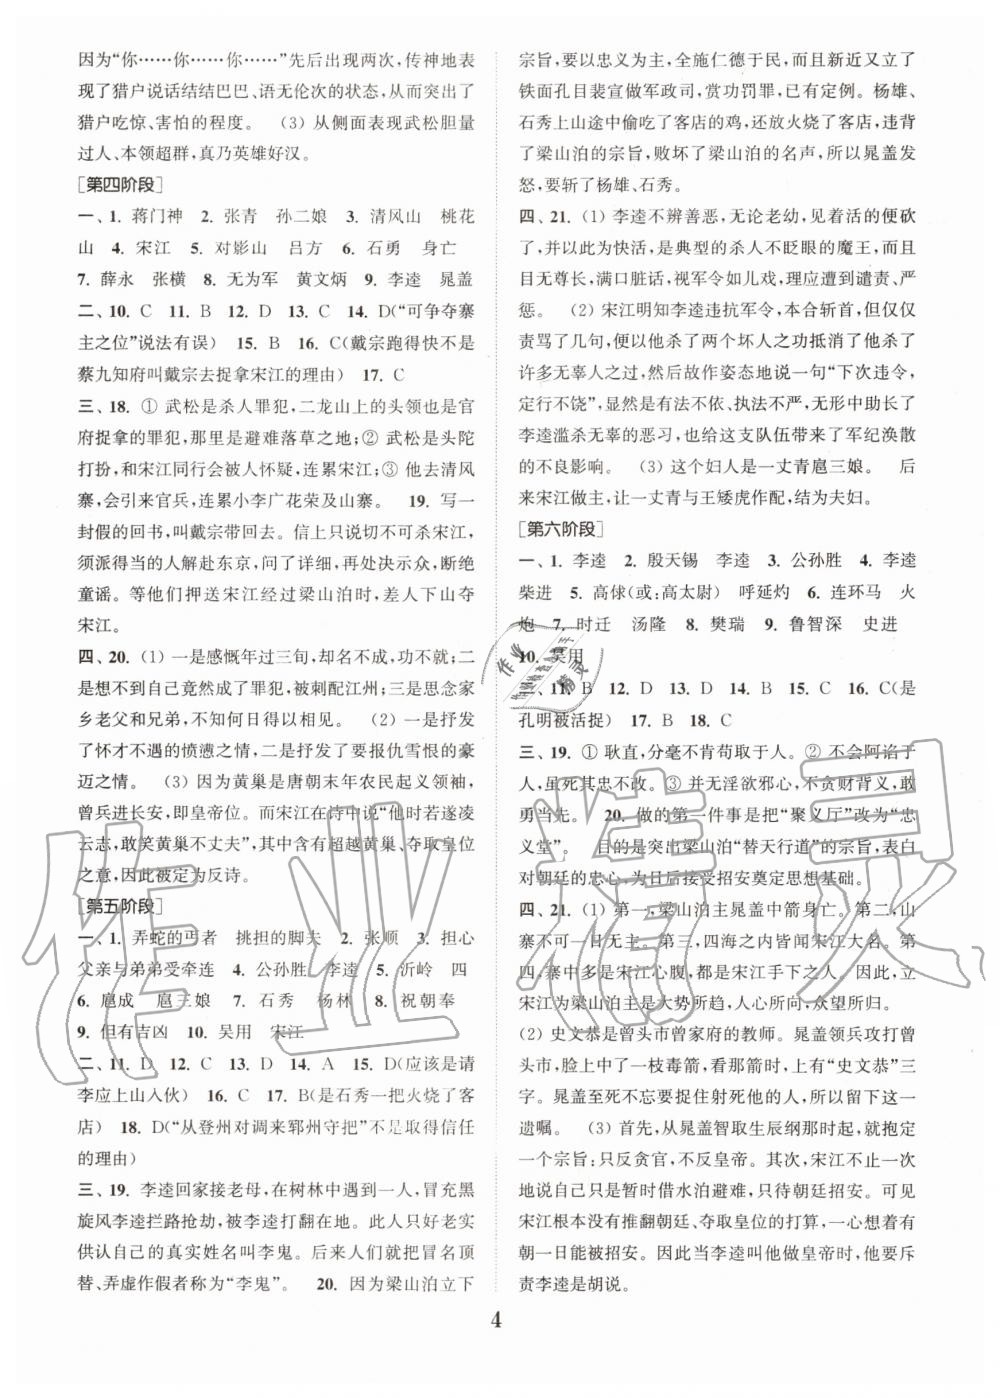 因为“你……你……你……”先后出现两次，传神地表
现了猎户说话结结巴巴、语无伦次的状态，从而突出了
猎户吃惊、害怕的程度。 (3) 从侧面表现武松胆量
过人、本领超群，真乃英雄好汉。
[第四阶段]
一、1. 蒋门神 2. 张青 孙二娘 3. 清风山 桃花
山 4. 宋江 5. 对影山 吕方 6. 石勇 身亡
7. 薛永 张横 8. 无为军 黄文炳 9. 李逵 晁盖
二、10. C 11. B 12. D 13. C 14. D(“可争夺寨
主之位”说法有误) 15. B 16. C(戴宗跑得快不是
蔡九知府叫戴宗去捉拿宋江的理由) 17. C
三、18. ① 武松是杀人罪犯，二龙山上的头领也是官
府捉拿的罪犯，那里是避难落草之地；② 武松是头陀
打扮，和宋江同行会被人怀疑，连累宋江；③ 他去清风
寨，会引来官兵，连累小李广花荣及山寨。 19. 写一
封假的回书，叫戴宗带回去。信上只说切切不可杀宋江，
须派得当的人解赴东京，问了详细，就在此处决示众，断绝
童谣。等他们押送宋江经过梁山泊时，差人下山夺
宋江。
四、20. (1) 一是感慨年过三旬，却名不成，功不就；二
是想不到自己竟然成了罪犯，被刺配江州；三是家乡老
乡老父和兄弟，不知何时得以相见。 (2) 一是抒发
了怀才不遇的愤懑之情，二是抒发了想报仇雪恨的豪
迈之情。 (3) 因为黄巢是唐朝末年农民起义领袖，
曾兵进长安，即皇帝位。而宋江在诗中说“他时若遂凌
云志，敢笑黄巢不丈夫”，其中含有超越黄巢、夺取皇位
之意，因此被定为反诗。
[第五阶段]
一、1. 弄蛇的丐者 挑担的脚夫 2. 张顺 3. 担心
父亲与弟弟受牵连 4. 公孙胜 李逵 5. 沂岭 四
6. 扈成 扈三娘 7. 石秀 杨林 8. 祝朝奉
9. 但有吉凶 10. 吴用 宋江
二、11. D 12. C 13. D 14. A 15. D(应该是请
李应上山入伙) 16. C 17. B(是石秀一把火烧了客
店) 18. D(“从登州对调来郓州守把”不是取得信任
的理由)
三、19. 李逵回家接老母，在树林中遇到一人，冒充黑
旋风李逵拦路抢劫，被李逵打翻在地。此人只好老实
供认自己的真实姓名叫李鬼。后来人们就把冒名顶
替、弄虚作假者称为“李鬼”。 20. 因为梁山泊立下
宗旨，要以忠义为主，全施仁德于民，而且新近又立了
铁面孔目裴宣做军政司，赏功罚罪，已有定例。杨雄、
石秀上山途中偷吃了客店的鸡，还放火烧了客店，违背
了梁山泊的宗旨，败坏了梁山泊的名声，所以晁盖发
怒，要斩了杨雄、石秀。
四、21. (1) 李逵不辨善恶，无论老幼，见着活的便砍
了，并以此为快活，是典型的杀人不眨眼的魔王，而且
目无尊长，满口脏话，视军令如儿戏，理应遭到谴责、严
惩。 (2) 宋江明知李逵违抗军令，本合斩首，但仅仅
责骂了几句，便以他杀了两个坏人之功抵消了他杀了
许多无辜人之过，然后故作姿态地说一句“下次违令，
定行不饶”，显然是有法不依、执法不严，无形中助长了
李逵滥杀无辜的恶习，也给这支队伍带来了军纪涣散
的不良影响。 (3) 这个妇人是一丈青扈三娘。 后
来宋江做主，让一丈青与王矮虎作配，结为夫妇。
[第六阶段]
一、1. 李逵 2. 殷天锡 李逵 3. 公孙胜 4. 李逵
柴进 5. 高俅(或：高太尉) 呼延灼 6. 连环马 火
炮 7. 时迁 汤隆 8. 樊瑞 9. 鲁智深 史进
10. 吴用
二、11. B 12. D 13. D 14. D 15. C 16. C(是
孔明被活捉) 17. B 18. C
三、19. ① 耿直，分毫不肯苟取于人。② 不会阿谄于
人，虽死其忠不改。③ 并无淫欲邪心，不贪财背义，敢
勇当先。 20. 做的第一件事是把“聚义厅”改为“忠
义堂”。 目的是突出梁山泊“替天行道”的宗旨，表白
对朝廷的忠心，为日后接受招安奠定思想基础。
四、21. (1) 第一，梁山泊主晁盖中箭身亡。第二，山
寨不可一日无主。第三，四海之内皆闻宋江大名。第
四，寨中多是宋江心腹，都是宋江手下之人。因此，立
宋江为梁山泊主是大势所趋，人心所向，众望所归。
(2) 史文恭是曾头市曾家府的教师。晁盖领兵攻打曾
头市，脸上中了一枝毒箭，箭上有“史文恭”三
字。晁盖至死不忘要捉射死他的人，所以有这一
遗嘱。 (3) 首先，从晁盖智取生辰纲那时起，就抱定
一个宗旨：只反贪官，不反皇帝。其次，宋江不止一次
地说自己只是暂时借水泊避难，只待朝廷招安。可见
宋江根本没有推翻朝廷、夺取皇位的打算，一心只望有
朝一日能被招安。因此当李逵叫他做皇帝时，他要斥
责李逵是胡说。
4
作业精灵